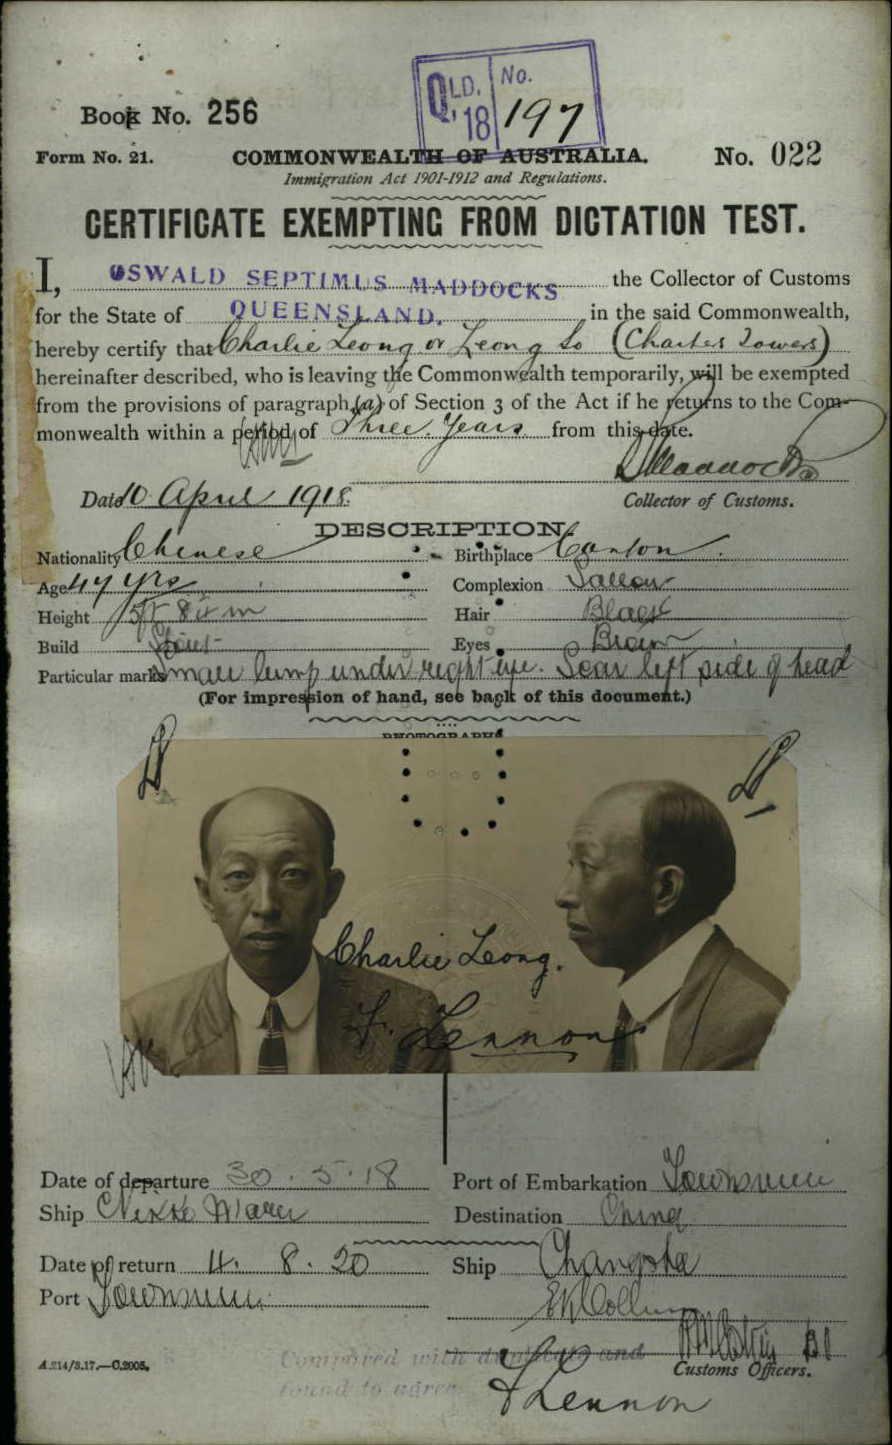 QLD. No.
'18 197
Book No. 256
Form No. 21. COMMONWEALTH OF AUSTRALIA. No. 022
Immigration Act 1901-1912 and Regulations.
CERTIFICATE EXEMPTING FROM DICTATION TEST.
I, OSWALD SEPTIMUS MADDOCKS the Collector of Customs
for the State of QUEENSLAND. in the said Commonwealth,
hereby certify that Charlie Leong or Leong So (Charters Towers)
hereinafter described, who is leaving the Commonwealth temporarily, will be exempted
from the provisions of paragraph (a) of Section 3 of the Act if he returns to the Com-
monwealth within a period of Three Years from this date.
Maddocks
Date 10 April 1918. Collector of Customs.
DESCRIPTION.
Nationality Chinese Birthplace Canton.
Age 47 yrs Complexion Sallow
Height 5ft 8 in Hair Black
Build Stout Eyes Brown
Particular marks Small lump under right eye. Scar left side of head
(For impression of hand, see back of this document.)
PHOTOGRAPHS
Charlie Leong.
F. Lennon
Date of departure 30.5.18 Port of Embarkation Townsville
Ship Nikko Maru Destination China
Date of return 4.8.20 Ship Changsha
Port Townsville
Customs Officers.
A.214/3.17.—C.2005.
Compared with duplicate and
found to agree
F Lennon